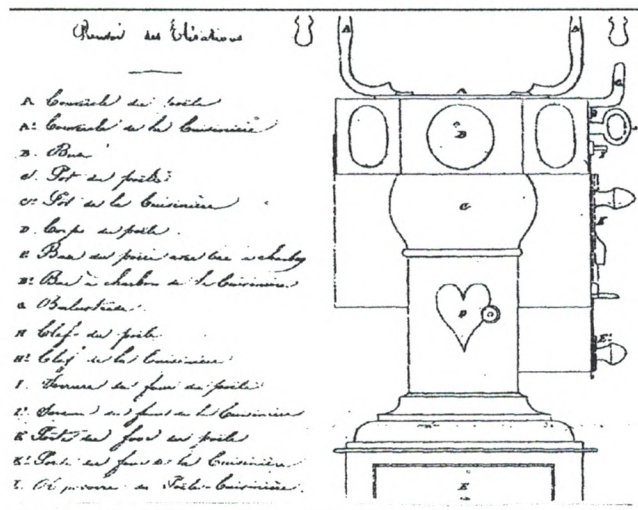 Renvoi des Elévations
A Couvercle du poële
A' Couvercle de la Cuisinière
B. Buse
C. Pot du poële
C' Pot de la Cuisinière
D. Corps du poële.
E. Bas du poële avec à charbon
E' Bac à charbon de la Cuisinière
G Balustrade.
H Clef du poële
H' Clef de la Cuisinière
I. Serrure du four du poële
I' Serrure du four de la Cuisinière
K Porte du four du poële
K' Porte du four de la Cuisinière
L. du Poële-Cuisinière.
A
A
G
B
C
D
E
H
I
K
E'